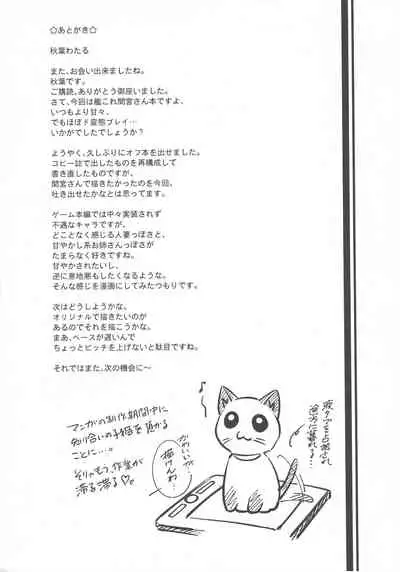 ☆あとがき☆
秋葉わたる
また、お会い出来ましたね。
秋葉です。
ご購読、ありがとう御座いました。
さて、今回は艦これ間宮さん本ですよ、
いつもより甘々、
でもほぼド変態プレイ…
いかがでしたでしょうか?
ようやく、久しぶりにオフ本を出せました。
コピー誌で出したものを再構成して
書き直したものですが、
間宮さんで描きたかったのを今回、
吐き出せたかなとは思ってます。
ゲーム本編では中々実装されず
不遇なキャラですが、
どことなく感じる人妻っぽさと、
甘やかし系お姉さんっぽさが
たまらなく好きですね。
甘やかされたいし、
逆に意地悪もしたくなるような。
そんな感じを漫画にしてみたつもりです。
次はどうしようかな。
オリジナルで描きたいのが
あるのでそれを描こうかな。
まあ、ペースが遅いんで
ちょっとピッチを上げないと駄目ですね。
それではまた、次の機会に~
マンガの制作期間中に
知り合いの子猫を預かる
ことに…。
そりゃもう、作業が
滞る滞る♡。
かわいいが、
描けんわ…